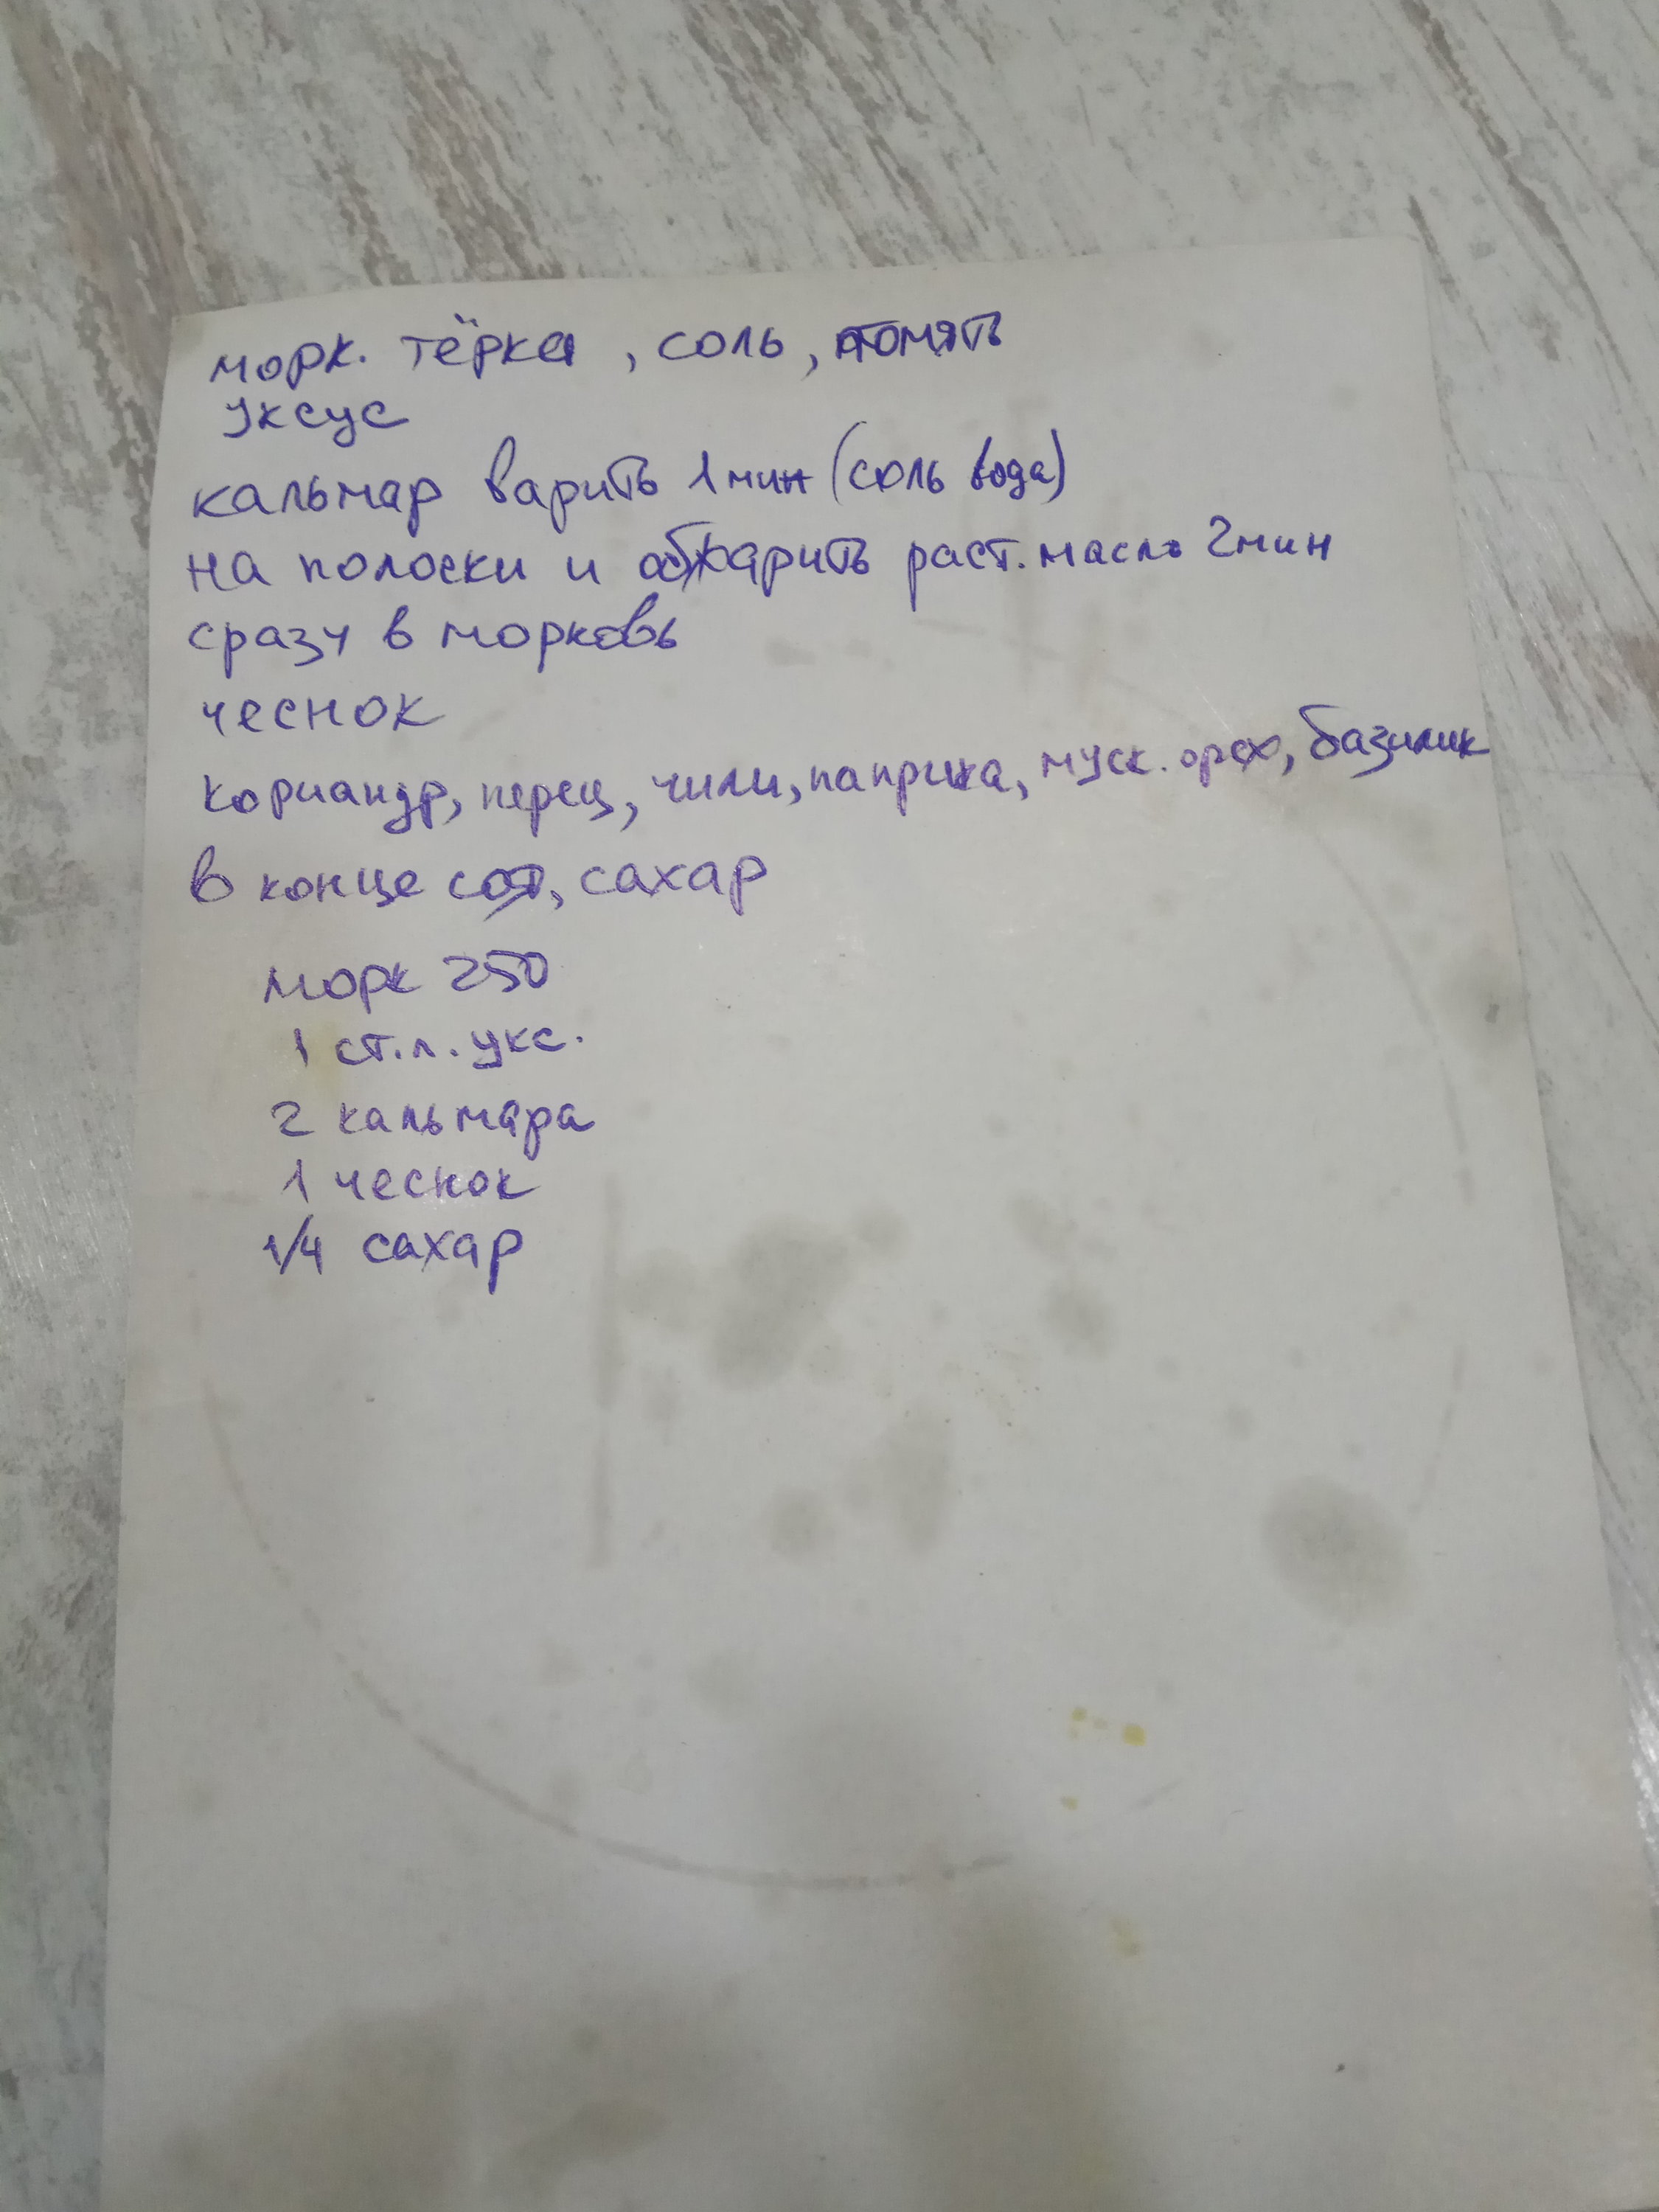 морк. тёрка, соль, помять
уксус
кальмар варить 1 мин (соль вода)
на полоски и обжарить раст. масло 2 мин
сразу в морковь
чеснок
кориандр, перец, чили, паприка, муск. орех, базилик
в конце соя, сахар
морк 250
1 ст.л. укс.
2 кальмара
1 чеснок
1/4 сахар